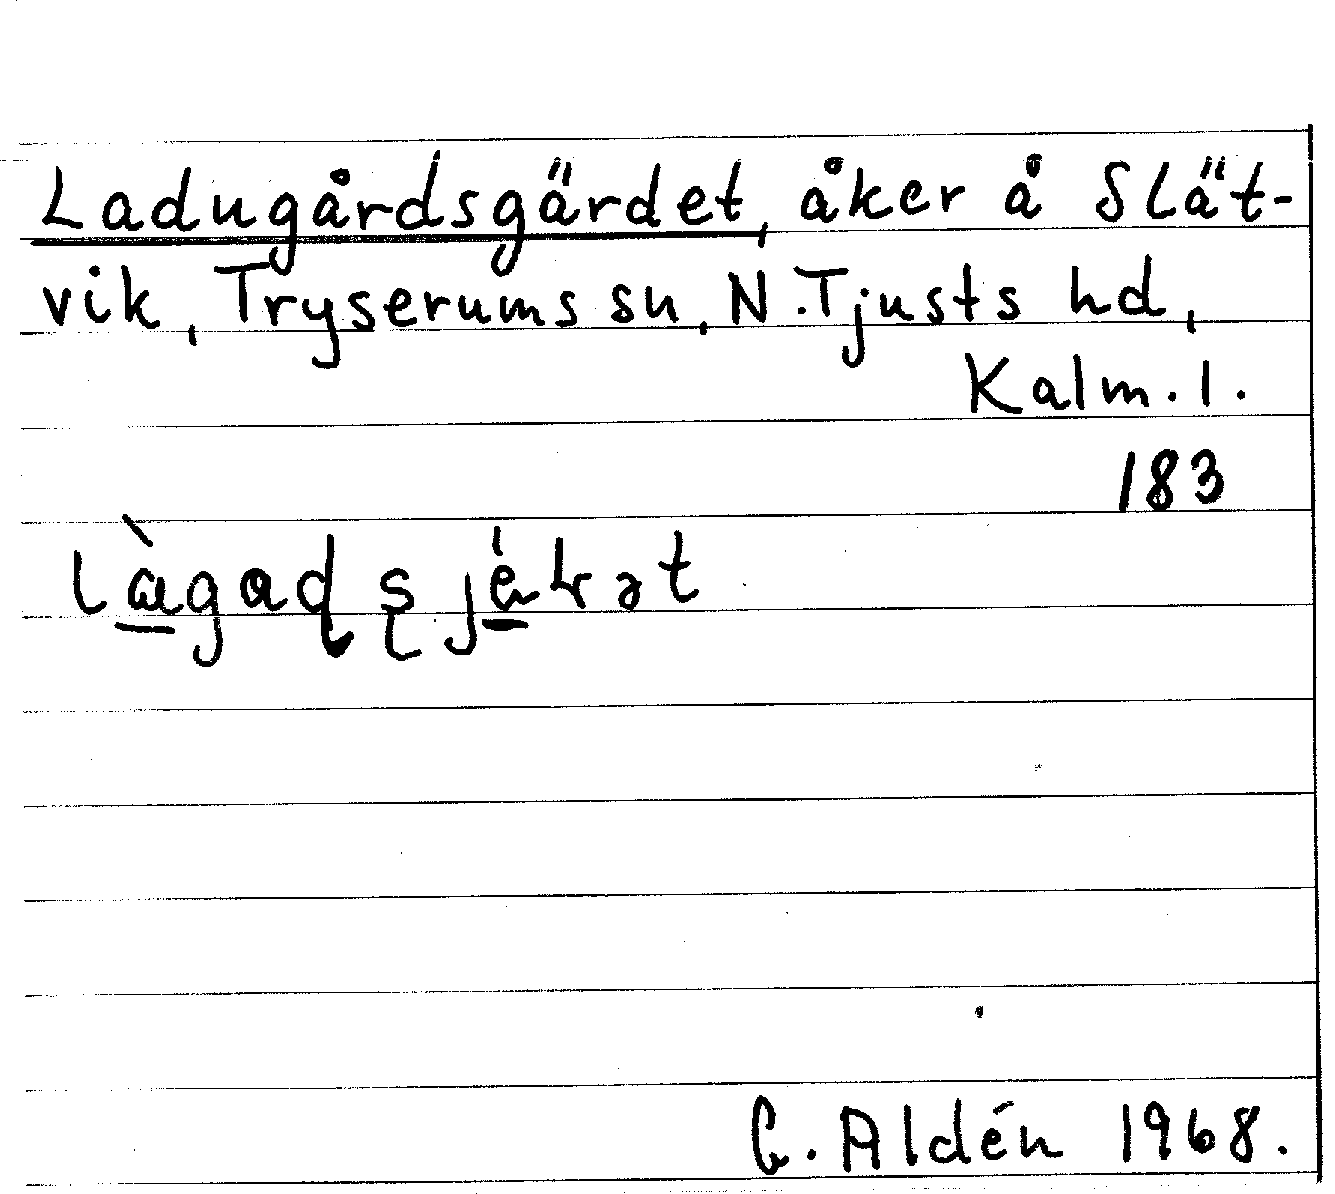 Ladugårdsgärdet, åker å Slät-
vik, Tryserums sn, N. Tjusts hd,
Kalm. l.
183
G. Aldén 1968.